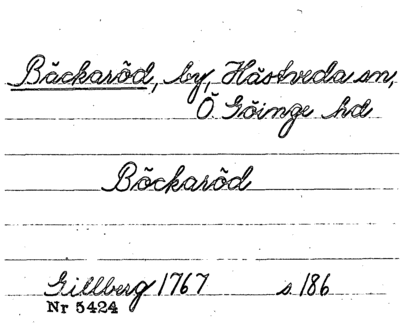 Bäckaröd, by, Hästveda sn,
Ö. Göinge hd
Böckaröd
Gillberg 1767 s. 186
Nr 5424